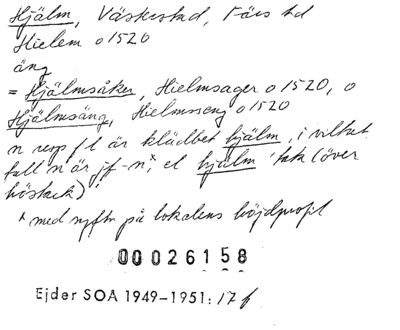 Hjälm, Västerstad, Färs hd
Hielem o 1520
äng
= Hjälmsåker, Hielmsager o 1520, o
Hjälmsäng, Hielmsseng o 1520
n resp f l är klädbet hjälm, i vilket
fall n är jf-n*, el hjälm 'tak (över
höstack)'
* med syftn på lokalens höjdprofil
00026158
Ejder SOA 1949-1951: 17 f